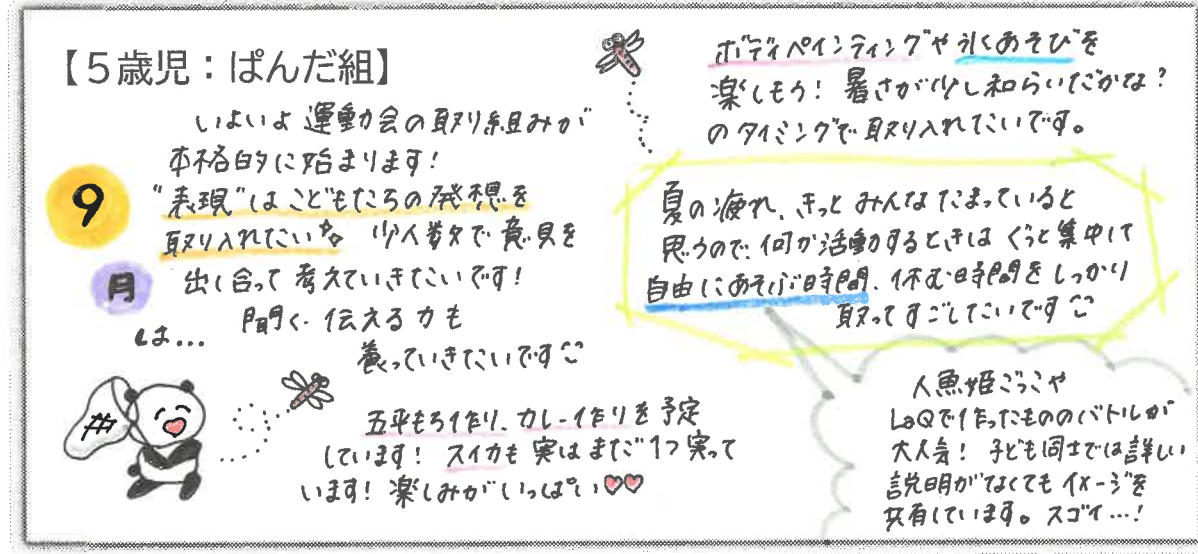 【5歳児：ぱんだ組】
9
月
は...
いよいよ運動会の取り組みが
本格的に始まります！
"表現"はこどもたちの発想を
取り入れたい 少人数で意見を
出し合って考えていきたいです！
聞く・伝える力も
養っていきたいです
五平もち作り、カレー作りを予定
しています！スイカも実はまだ1つ実って
います！楽しみがいっぱい♡♡
ボディペインティングや氷あそびを
楽しもう！暑さが少し和らいだかな？
のタイミングで取り入れたいです。
夏の疲れ、きっとみんなたまっていると
思うので、何か活動するときはぐっと集中して
自由にあそぶ時間、休む時間をしっかり
取ってすごしたいです
人魚姫ごっこや
LaQで作ったもののバトルが
大人気！子ども同士では詳しい
説明がなくてもイメージを
共有しています。スゴイ...！